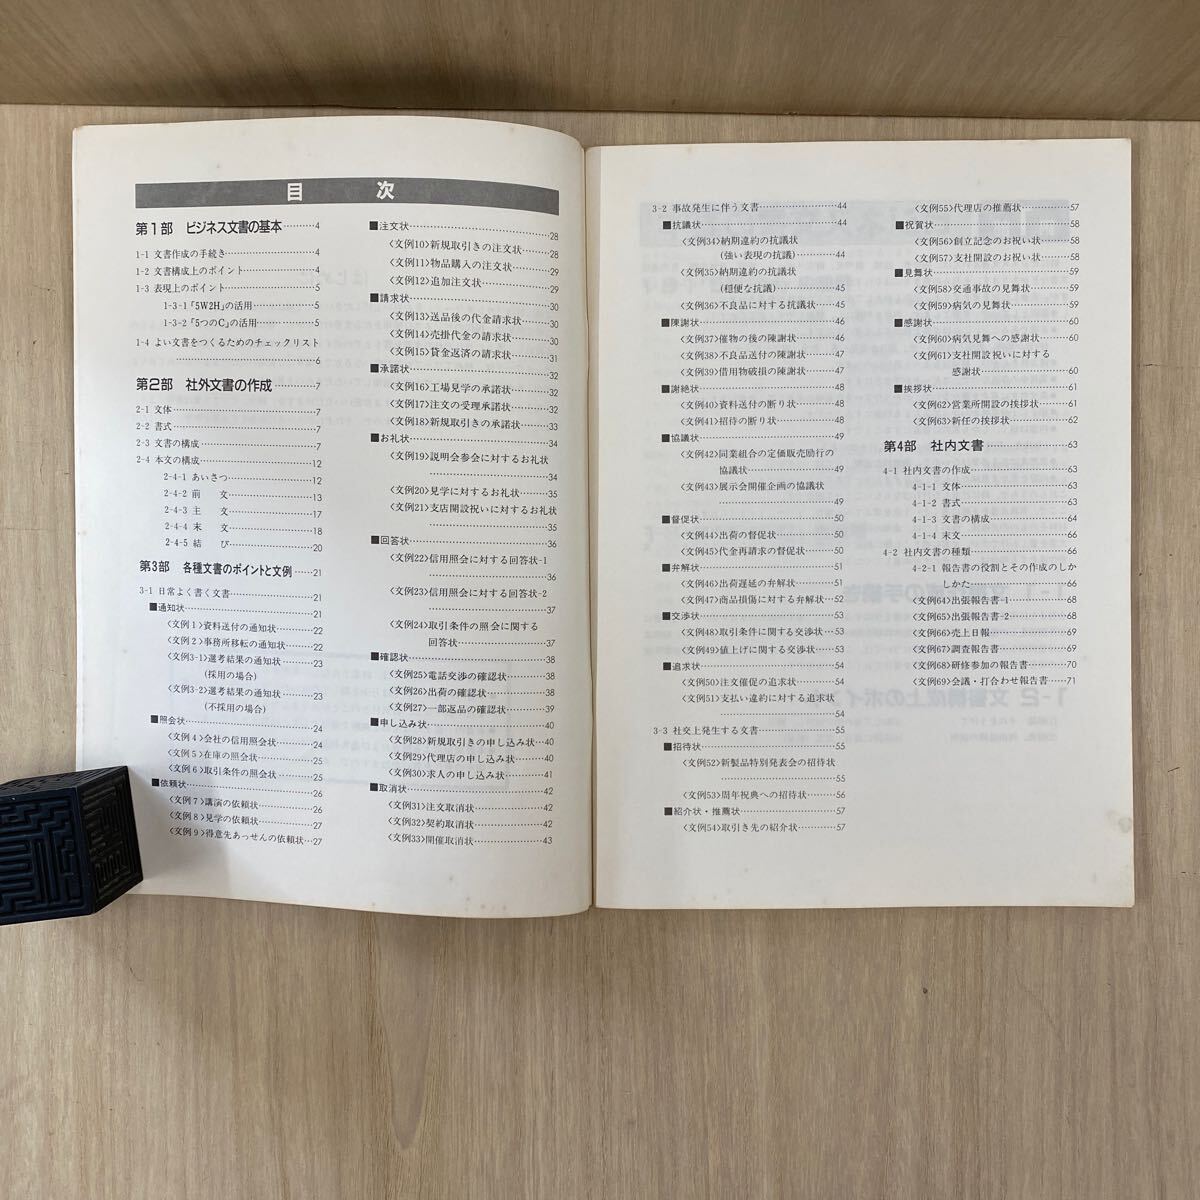 目　次
第1部　ビジネス文書の基本………4
1-1 文書作成の手続き………4
1-2 文書構成上のポイント………4
1-3 表現上のポイント………5
1-3-1「5W2H」の活用………5
1-3-2「5つのC」の活用………5
1-4 よい文書をつくるためのチェックリスト
………6
第2部　社外文書の作成………7
2-1 文体………7
2-2 書式………7
2-3 文書の構成………7
2-4 本文の構成………12
2-4-1 あいさつ………12
2-4-2 前　文………13
2-4-3 主　文………17
2-4-4 末　文………18
2-4-5 結　び………20
第3部　各種文書のポイントと文例…21
3-1 日常よく書く文書………21
■通知状………21
〈文例1〉資料送付の通知状………22
〈文例2〉事務所移転の通知状………22
〈文例3-1〉選考結果の通知状………23
(採用の場合)
〈文例3-2〉選考結果の通知状………23
(不採用の場合)
■照会状………24
〈文例4〉会社の信用照会状………24
〈文例5〉在庫の照会状………25
〈文例6〉取引条件の照会状………25
■依頼状………26
〈文例7〉講演の依頼状………26
〈文例8〉見学の依頼状………27
〈文例9〉得意先あっせんの依頼状…27
■注文状………28
〈文例10〉新規取引きの注文状………28
〈文例11〉物品購入の注文状………29
〈文例12〉追加注文状………29
■請求状………30
〈文例13〉送品後の代金請求状………30
〈文例14〉売掛代金の請求状………30
〈文例15〉貸金返済の請求状………31
■承諾状………32
〈文例16〉工場見学の承諾状………32
〈文例17〉注文の受理承諾状………32
〈文例18〉新規取引きの承諾状………33
■お礼状………34
〈文例19〉説明会参会に対するお礼状
………34
〈文例20〉見学に対するお礼状………35
〈文例21〉支店開設祝いに対するお礼状
………35
■回答状………36
〈文例22〉信用照会に対する回答状-1
………36
〈文例23〉信用照会に対する回答状-2
………37
〈文例24〉取引条件の照会に関する
回答状………37
■確認状………38
〈文例25〉電話交渉の確認状………38
〈文例26〉出荷の確認状………38
〈文例27〉一部返品の確認状………39
■申し込み状………40
〈文例28〉新規取引きの申し込み状…40
〈文例29〉代理店の申し込み状………40
〈文例30〉求人の申し込み状………41
■取消状………42
〈文例31〉注文取消状………42
〈文例32〉契約取消状………42
〈文例33〉開催取消状………43
3-2 事故発生に伴う文書………44
■抗議状………44
〈文例34〉納期違約の抗議状
(強い表現の抗議)………44
〈文例35〉納期違約の抗議状
(穏便な抗議)………45
〈文例36〉不良品に対する抗議状………45
■陳謝状………46
〈文例37〉催物の後の陳謝状………46
〈文例38〉不良品送付の陳謝状………47
〈文例39〉借用物破損の陳謝状………47
■謝絶状………48
〈文例40〉資料送付の断り状………48
〈文例41〉招待の断り状………48
■協議状………49
〈文例42〉同業組合の定価販売励行の
協議状………49
〈文例43〉展示会開催企画の協議状
………49
■督促状………50
〈文例44〉出荷の督促状………50
〈文例45〉代金再請求の督促状………50
■弁解状………51
〈文例46〉出荷遅延の弁解状………51
〈文例47〉商品損傷に対する弁解状…52
■交渉状………53
〈文例48〉取引条件に関する交渉状…53
〈文例49〉値上げに関する交渉状………53
■追求状………54
〈文例50〉注文催促の追求状………54
〈文例51〉支払い違約に対する追求状
………54
3-3 社交上発生する文書………55
■招待状………55
〈文例52〉新製品特別発表会の招待状
………55
〈文例53〉周年祝典への招待状………56
■紹介状・推薦状………57
〈文例54〉取引き先の紹介状………57
〈文例55〉代理店の推薦状………57
■祝賀状………58
〈文例56〉創立記念のお祝い状………58
〈文例57〉支社開設のお祝い状………58
■見舞状………59
〈文例58〉交通事故の見舞状………59
〈文例59〉病気の見舞状………59
■感謝状………60
〈文例60〉病気見舞への感謝状………60
〈文例61〉支社開設祝いに対する
感謝状………60
■挨拶状………61
〈文例62〉営業所開設の挨拶状………61
〈文例63〉新任の挨拶状………62
第4部　社内文書………63
4-1 社内文書の作成………63
4-1-1 文体………63
4-1-2 書式………63
4-1-3 文書の構成………64
4-1-4 末文………66
4-2 社内文書の種類………66
4-2-1 報告書の役割とその作成のしか
しかた………66
〈文例64〉出張報告書-1………68
〈文例65〉出張報告書-2………68
〈文例66〉売上日報………69
〈文例67〉調査報告書………69
〈文例68〉研修参加の報告書………70
〈文例69〉会議・打合わせ報告書……71